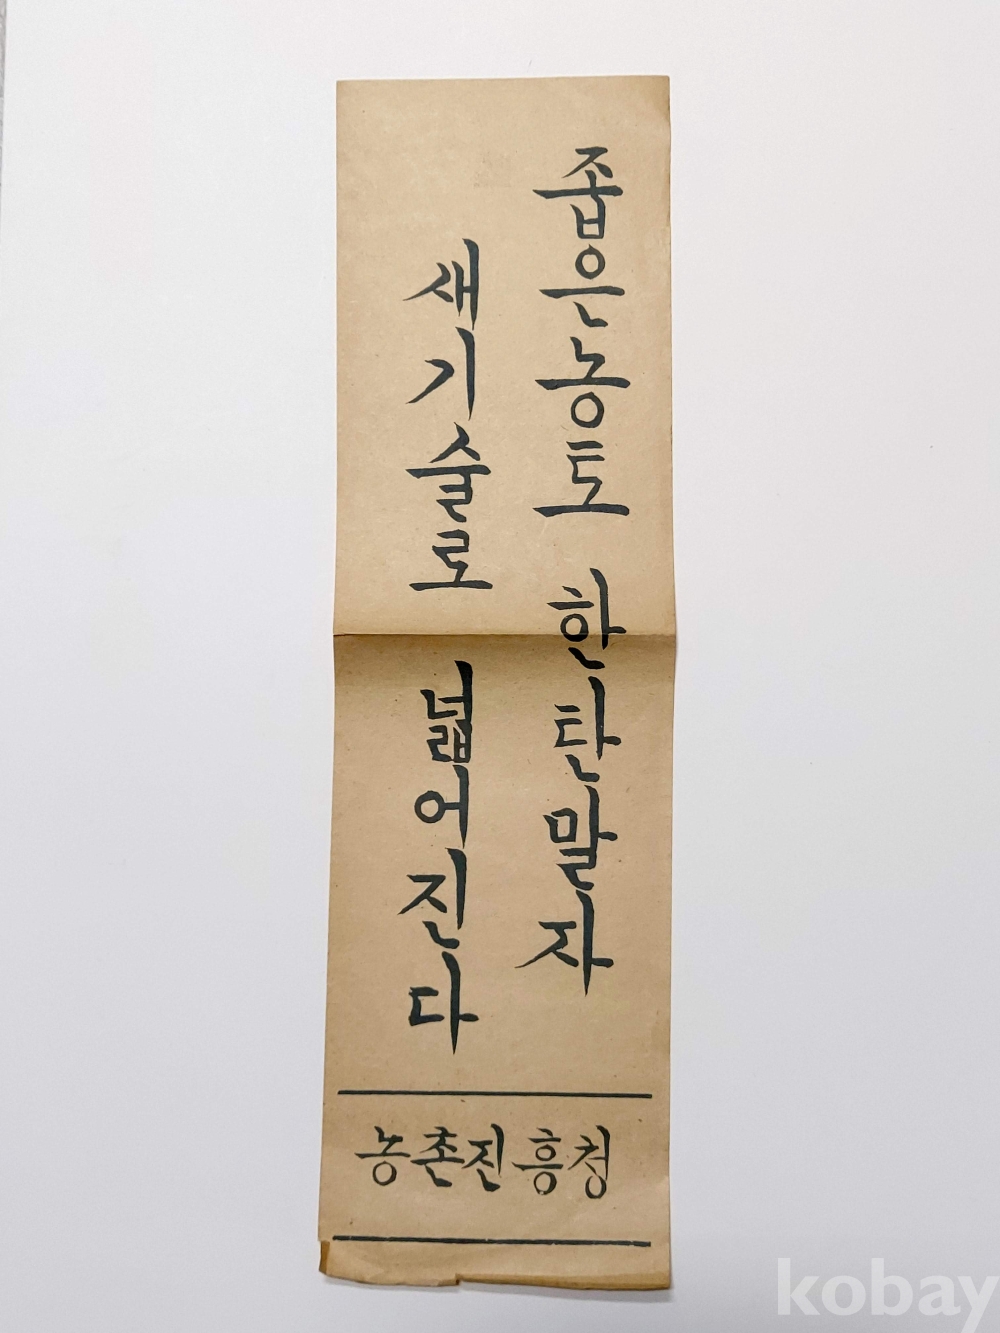 좁은농토 한탄말자
새기술로 넓어진다
농촌진흥청
kobay